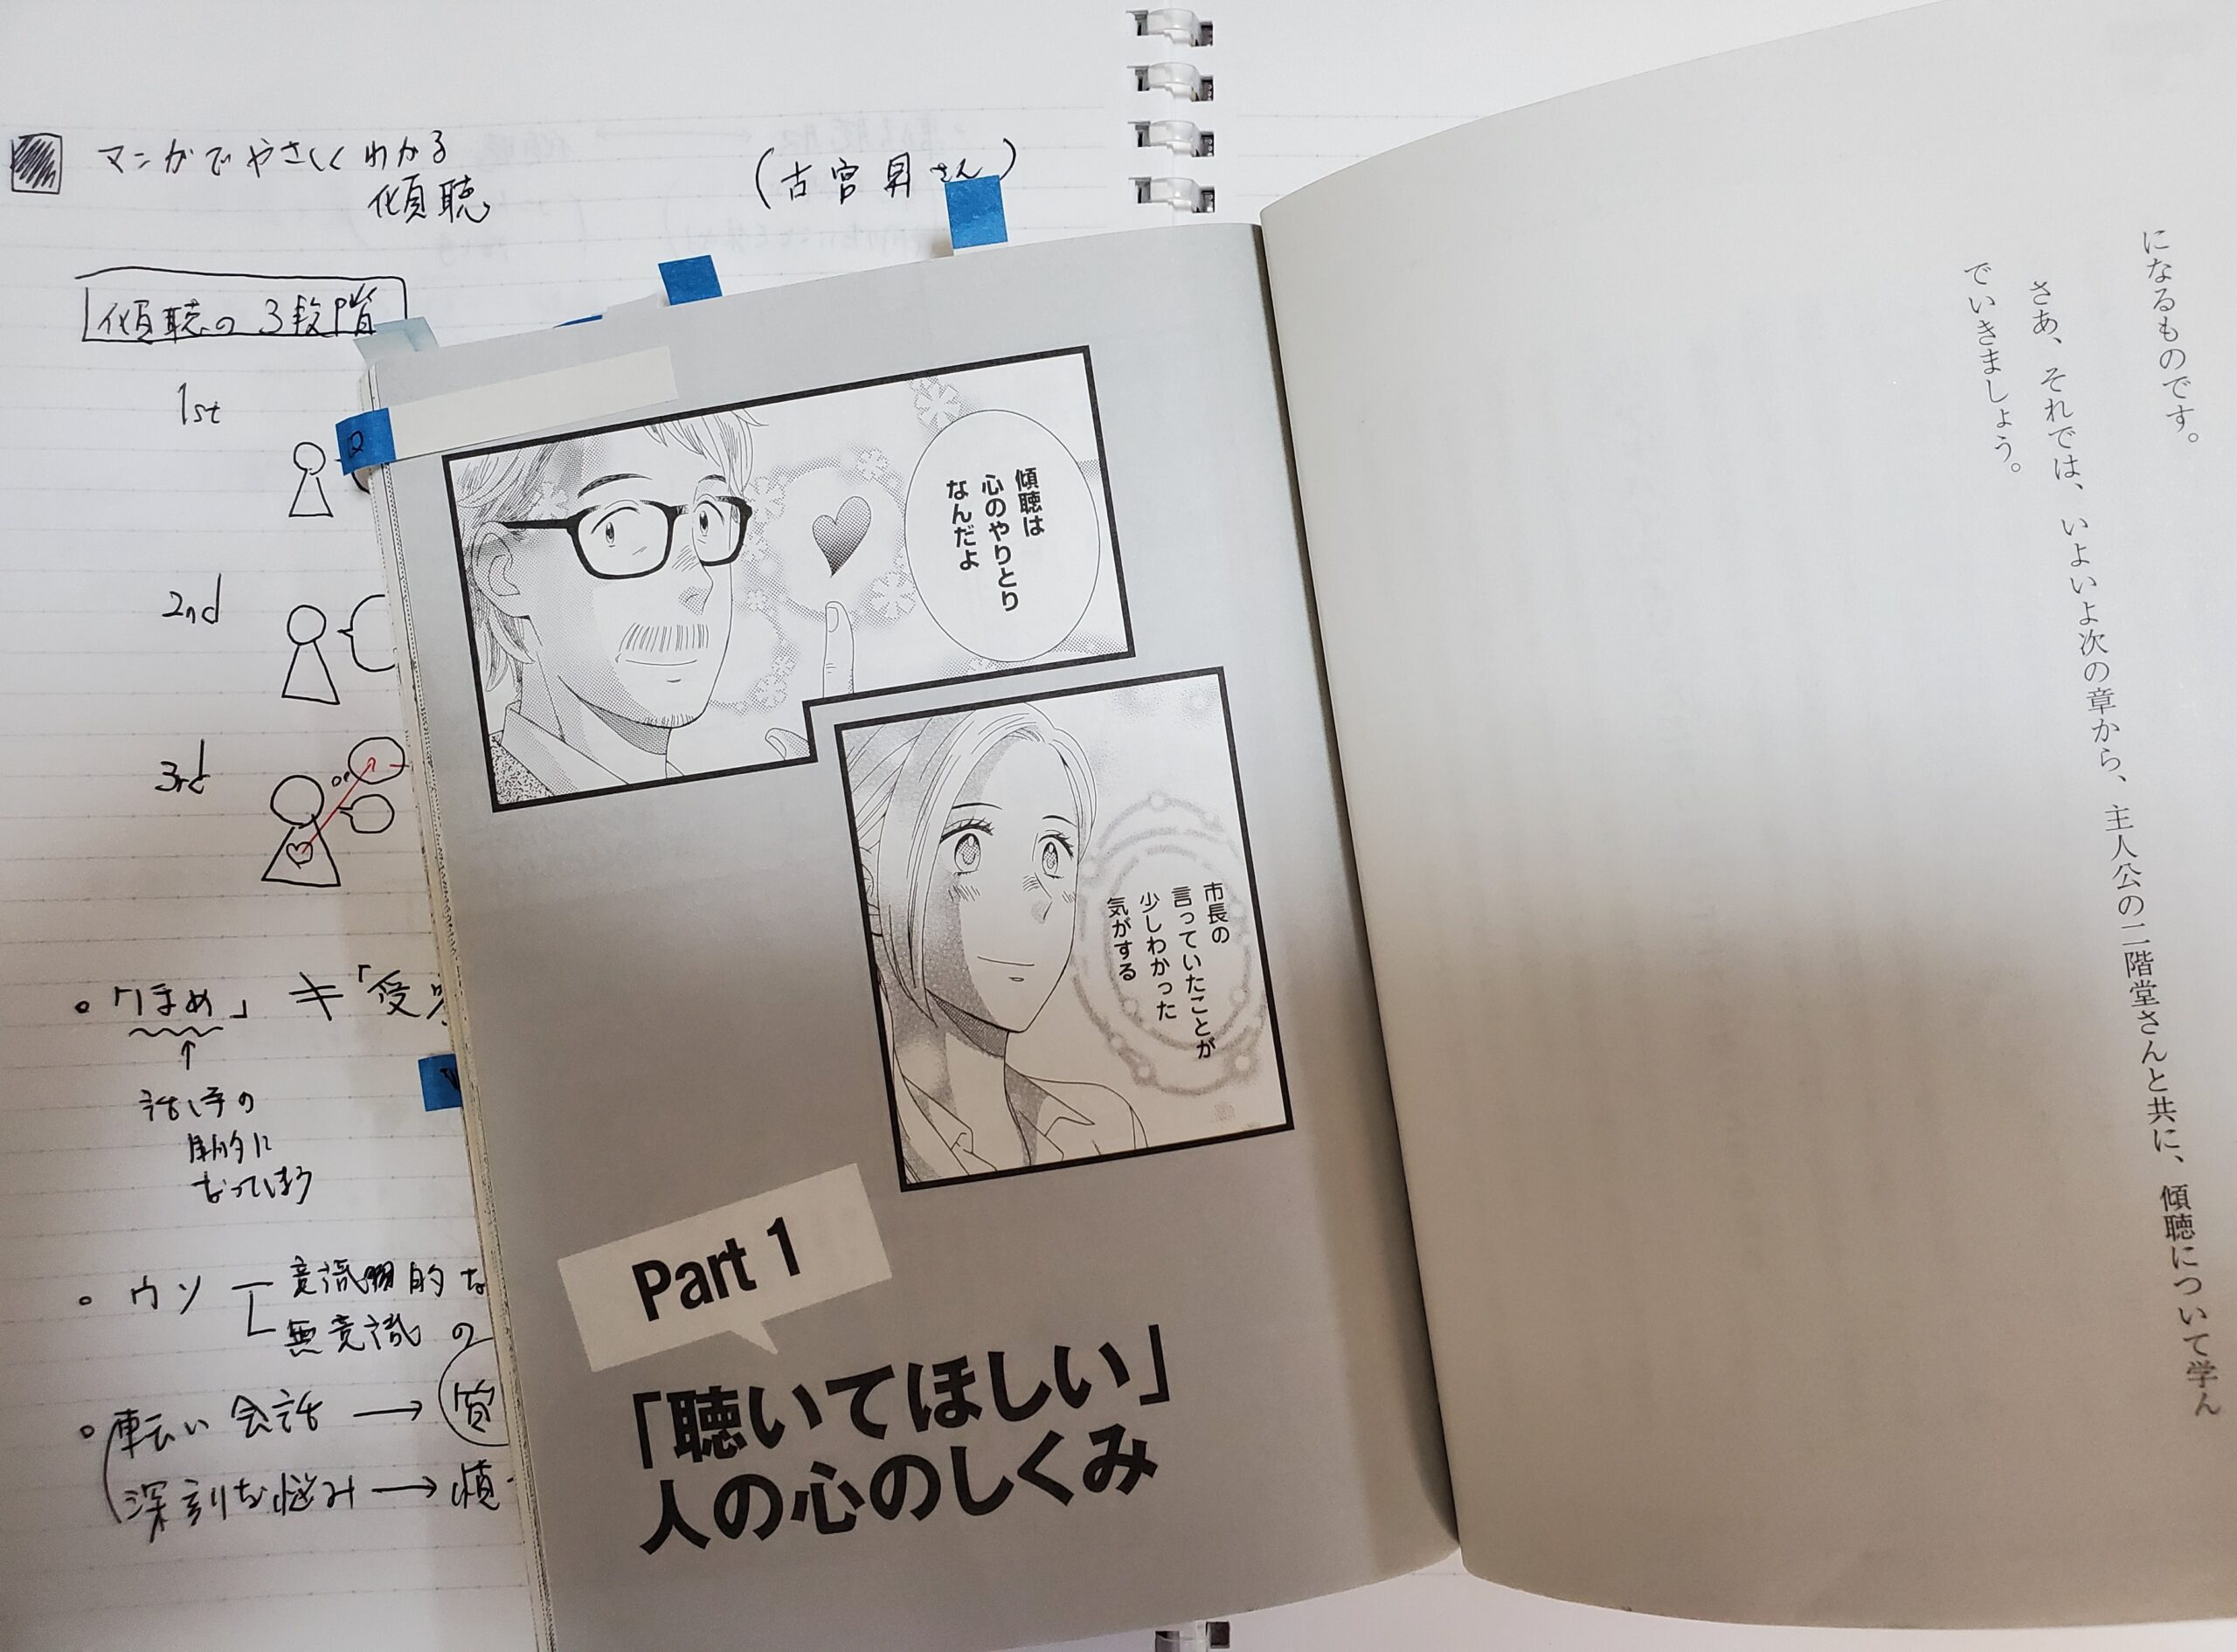 マンガでやさしくわかる
傾聴
(古宮昇さん)
傾聴の3段階
1st
2nd
3rd
・「ほめ」≠「受
↑
話し手の
目的に
なってしまう
・ウソ
意識的な
無意識の
・軽い会話 → 質
深刻な悩み → 傾
傾聴は
心のやりとり
なんだよ
市長の
言っていたことが
少しわかった
気がする
Part 1
「聴いてほしい」
人の心のしくみ
になるものです。
さあ、それでは、いよいよ次の章から、主人公の二階堂さんと共に、傾聴について学ん
でいきましょう。